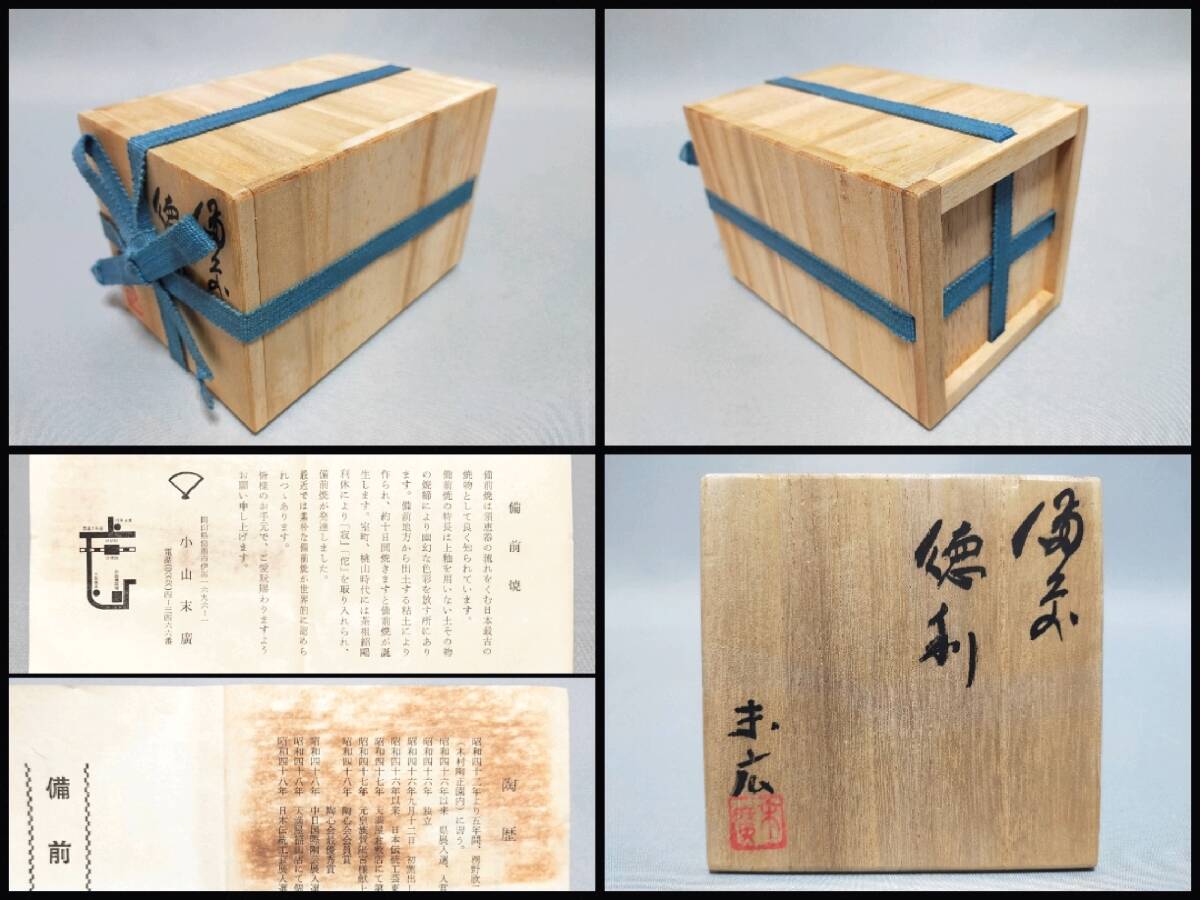 備前
徳利
末広
備前焼
備前焼は須恵器の流れをくむ日本最古の
焼物として良く知られています。
備前焼の特長は上釉を用いない土その物
の焼締により幽幻な色彩を放す所にあり
ます。備前地方から出土する粘土により
作られ、約十日間焼きますと備前焼が誕
生します。室町、桃山時代には茶祖紹鷗
利休により『寂』『侘』を取り入れられ、
備前焼が発達しました。
最近では素朴な備前焼が世界的に認めら
れつゝあります。
皆様のお手元で、ご愛玩賜わりますよう
お願い申し上げます。
小山末廣
陶歴
昭和四十二年より五年間、
(木村陶正園内)に習う。
昭和四十六年以来 県展入選、入賞
昭和四十六年 独立
昭和四十六年九月十二日 初窯出し
昭和四十六年以来 日本伝統工芸
昭和四十七年 天満屋
昭和四十七年
昭和四十八年 陶心会会員賞
陶心会最優秀賞
昭和四十八年 中日国際陶芸展入選
昭和四十八年 天満屋
昭和四十八年 日本伝統工芸展入選
備前